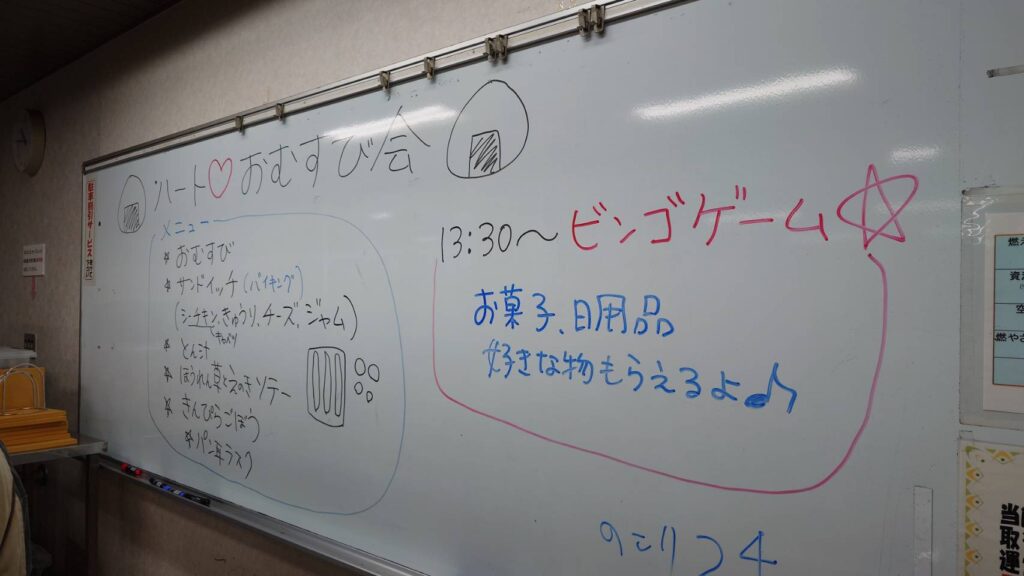 ハート♡おむすび会
メニュー
* おむすび
* サンドイッチ(バイキング)
(シーチキン、きゅうり、チーズ、ジャム)
キャベツ
* とん汁
* ほうれん草とえのきソテー
* きんぴらごぼう
* パン耳ラスク
13:30〜ビンゴゲーム☆
お菓子、日用品
好きな物もらえるよ♪
のこり
駐車割引サービス
燃え
資
空
燃やさ
当
取
運